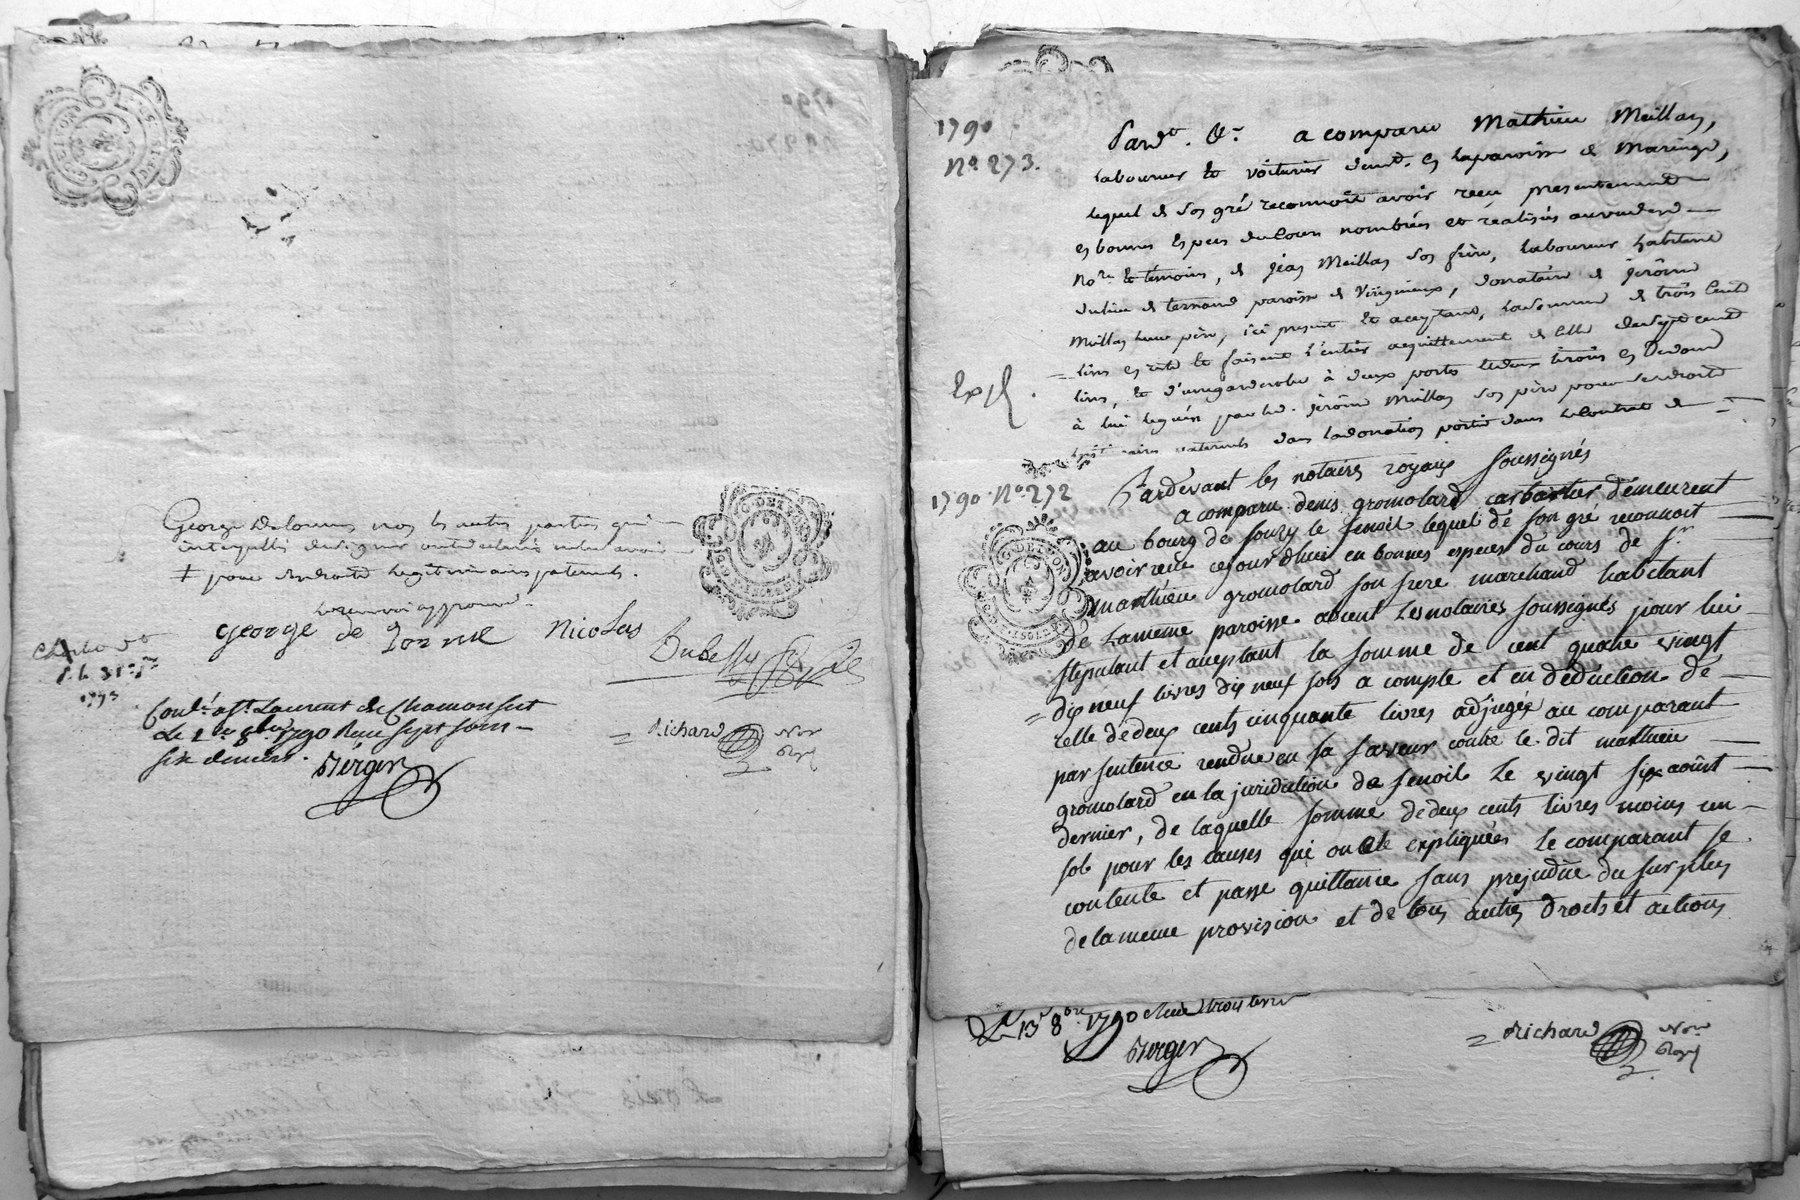 George Delorme non les autres parties qui
interpellés de signer ont declaré ne le savoir
+ pour ses droits legitimaires paternels.
Le renvoi approuvé
george de Lorme Nicolas
Dubessy
1793
Conlé. a St. Laurent de Chamousset
Le 1er 8bre 1790 Reçu sept sous
six deniers.
Berger
= Richard Nore
Royl
G. DE LYON
1790
No. 273.
Pardt. &c. a comparu Mathieu Meillan,
laboureur et voiturier demt. en la paroisse de Maringe,
lequel de son gré reconnoit avoir reçu presentement
en bonnes especes du cours nombrées et réalisées au vu des d.
nore. et témoins, de jean Meillan son frère, laboureur habitant
du lieu de ternand paroisse de Virigneux, donataire de jerôme
Meillan leur père, ici present et acceptant, la somme de trois cent
livres en reste et faisant l'entier acquittement de celle de sept cent
livres, et d'une garderobe à deux portes et deux tiroirs
à lui léguée par led. jerôme Meillan son père pour ses droits
legitimaires paternels dans la donation portée dans le contrat de
Exp.
1790. No. 272
Pardevant les notaires royaux Soussignés
a comparu denis gromolard cabartier demeurent
au bourg de souzy le Jenoil lequel de son gré reconnoit
avoir reçu ce jourd'hui en bonnes especes du cours de Sr.
matthieu gromolard son frere marchand habitant
de la meme paroisse avent les notaires soussignés pour lui
stipulant et aceptant la somme de cent quatre vingt
= dix neuf livres dix neuf sols a compte et en déduction de
celle de deux cents cinquante livres adjugée au comparant
par sentence rendue en sa faveur contre le dit matthieu
gromolard en la juridiction de Jenoil le vingt six août
dernier, de laquelle somme de deux cents livres moins un
sol pour les causes qui on été expliquées le comparant se
contente et passe quittance sans prejudice du surplus
de la meme provision et de tous autres droits et actions
G. DE LYON
Le 13e 8bre. 1790 Reçu
Berger
= Richard Nore
Royl